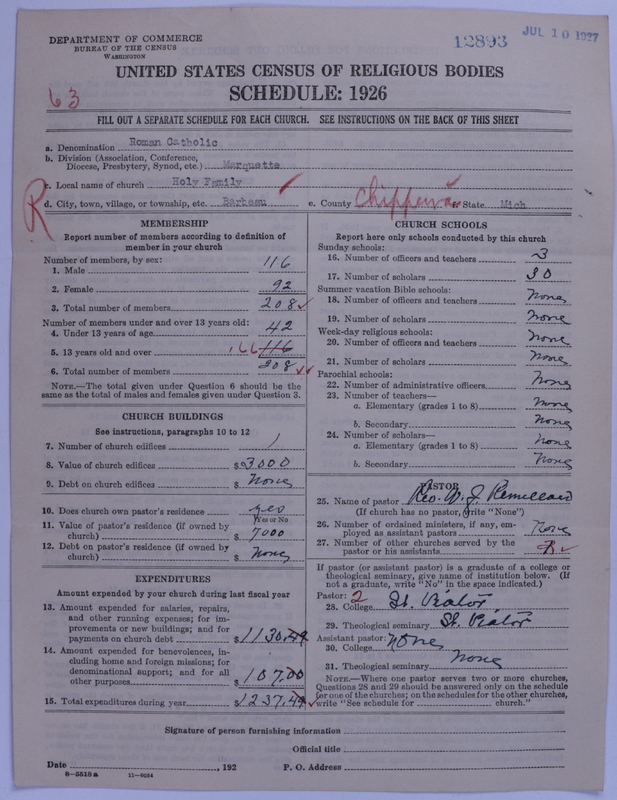 DEPARTMENT OF COMMERCE
BUREAU OF THE CENSUS
WASHINGTON
12893
JUL 10 1927
UNITED STATES CENSUS OF RELIGIOUS BODIES
SCHEDULE: 1926
63
FILL OUT A SEPARATE SCHEDULE FOR EACH CHURCH. SEE INSTRUCTIONS ON THE BACK OF THIS SHEET
a. Denomination Roman Catholic
b. Division (Association, Conference,
Diocese, Presbytery, Synod, etc.) Marquette
c. Local name of church Holy Family
R
d. City, town, village, or township, etc. Barbeau e. County Chippewa f. State Mich
MEMBERSHIP
Report number of members according to definition of
member in your church
Number of members, by sex:
1. Male 116
2. Female 92
3. Total number of members 208
Number of members under and over 13 years old:
4. Under 13 years of age 42
5. 13 years old and over 166 116
6. Total number of members 208
NOTE.—The total given under Question 6 should be the
same as the total of males and females given under Question 3.
CHURCH BUILDINGS
See instructions, paragraphs 10 to 12
7. Number of church edifices 1
8. Value of church edifices $3000
9. Debt on church edifices $ None
10. Does church own pastor's residence yes
Yes or No
11. Value of pastor's residence (if owned by
church) $ 7000
12. Debt on pastor's residence (if owned by
church) $ None
EXPENDITURES
Amount expended by your church during last fiscal year
13. Amount expended for salaries, repairs,
and other running expenses; for im-
provements or new buildings; and for
payments on church debt $1130.49
14. Amount expended for benevolences, in-
cluding home and foreign missions; for
denominational support; and for all
other purposes $ 107.00
15. Total expenditures during year $1237.49
CHURCH SCHOOLS
Report here only schools conducted by this church
Sunday schools:
16. Number of officers and teachers 3
17. Number of scholars 30
Summer vacation Bible schools:
18. Number of officers and teachers None
19. Number of scholars None
Week-day religious schools:
20. Number of officers and teachers None
21. Number of scholars None
Parochial schools:
22. Number of administrative officers None
23. Number of teachers—
a. Elementary (grades 1 to 8) None
b. Secondary None
24. Number of scholars—
a. Elementary (grades 1 to 8) None
b. Secondary None
PASTOR
25. Name of pastor Rev. W. J. Remillard
(If church has no pastor, write "None")
26. Number of ordained ministers, if any, em-
ployed as assistant pastors None
27. Number of other churches served by the
pastor or his assistants
If pastor (or assistant pastor) is a graduate of a college or
theological seminary, give name of institution below. (If
not a graduate, write "No" in the space indicated.)
Pastor: 2
28. College St. Viator
29. Theological seminary St. Viator
Assistant pastor:
30. College None
31. Theological seminary None
NOTE.—Where one pastor serves two or more churches,
Questions 28 and 29 should be answered only on the schedule
for one of the churches; on the schedules for the other churches,
write "See schedule for church."
Signature of person furnishing information
Official title
Date , 192 P. O. Address
8-5518a 11-9034